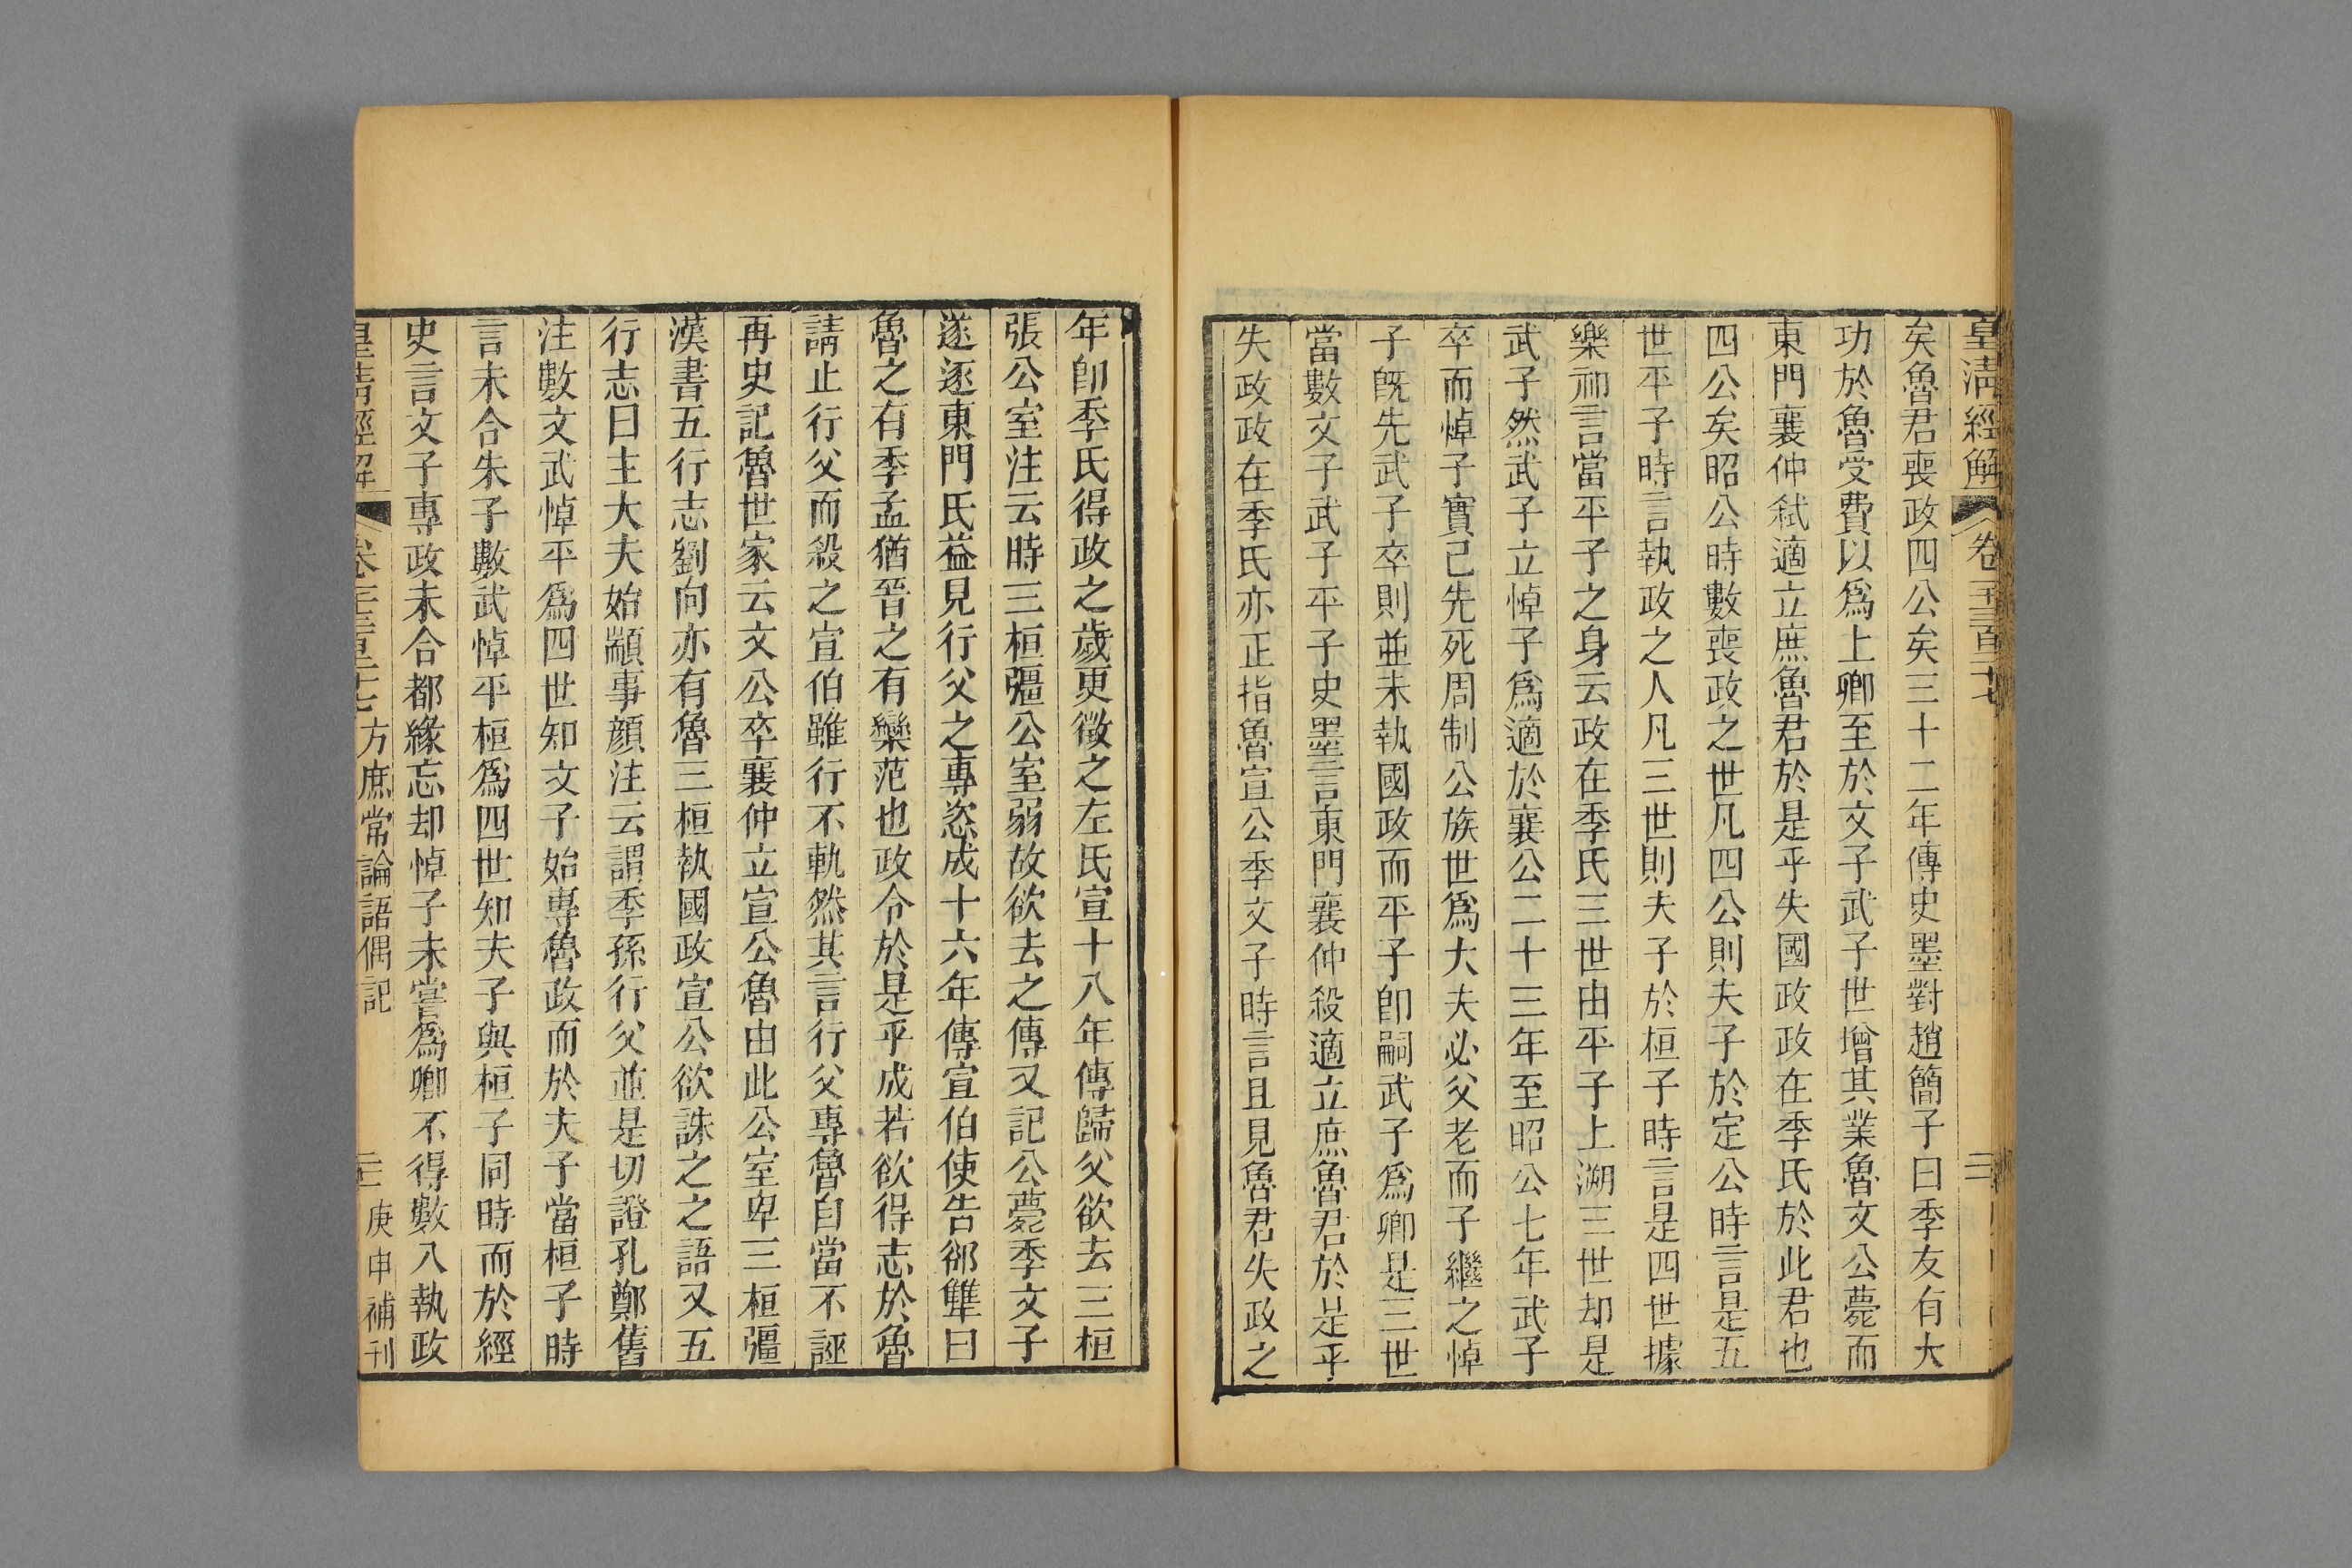 皇清經解 卷一千三百二十七 二
矣魯君喪政四公矣三十二年傳史墨對趙簡子曰季友有大
功於魯受費以爲上卿至於文子武子世增其業魯文公薨而
東門襄仲弒適立庶魯君於是乎失國政政在季氏於此君也
四公矣昭公時數喪政之世凡四公則夫子於定公時言是五
世平子時言執政之人凡三世則夫子於桓子時言是四世據
樂祁言當平子之身云政在季氏三世由平子上溯三世却是
武子然武子立悼子爲適於襄公二十三年至昭公七年武子
卒而悼子實已先死周制公族世爲大夫必父老而子繼之悼
子既先武子卒則並未執國政而平子卽嗣武子爲卿是三世
當數文子武子平子史墨言東門襄仲殺適立庶魯君於是乎
失政政在季氏亦正指魯宣公季文子時言且見魯君失政之
年卽季氏得政之歲更徵之左氏宣十八年傳歸父欲去三桓
張公室注云時三桓彊公室弱故欲去之傳又記公薨季文子
遂逐東門氏益見行父之專恣成十六年傳宣伯使告郤犨曰
魯之有季孟猶晉之有欒范也政令於是乎成若欲得志於魯
請止行父而殺之宣伯雖行不軌然其言行父專魯自當不誣
再史記魯世家云文公卒襄仲立宣公魯由此公室卑三桓彊
漢書五行志劉向亦有魯三桓執國政宣公欲誅之之語又五
行志曰主大夫始顓事顏注云謂季孫行父並是切證孔鄭舊
注數文武悼平爲四世知文子始專魯政而於夫子當桓子時
言未合朱子數武悼平桓爲四世知夫子與桓子同時而於經
史言文子專政未合都緣忘却悼子未嘗爲卿不得數入執政
皇清經解 方庶常論語偶記 庚申補刊